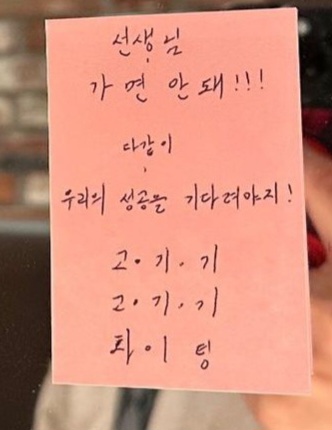 선생님
가면 안돼!!!
다같이
우리의 성공을 기다려야지!
고·기·기
고·기·기
화이팅